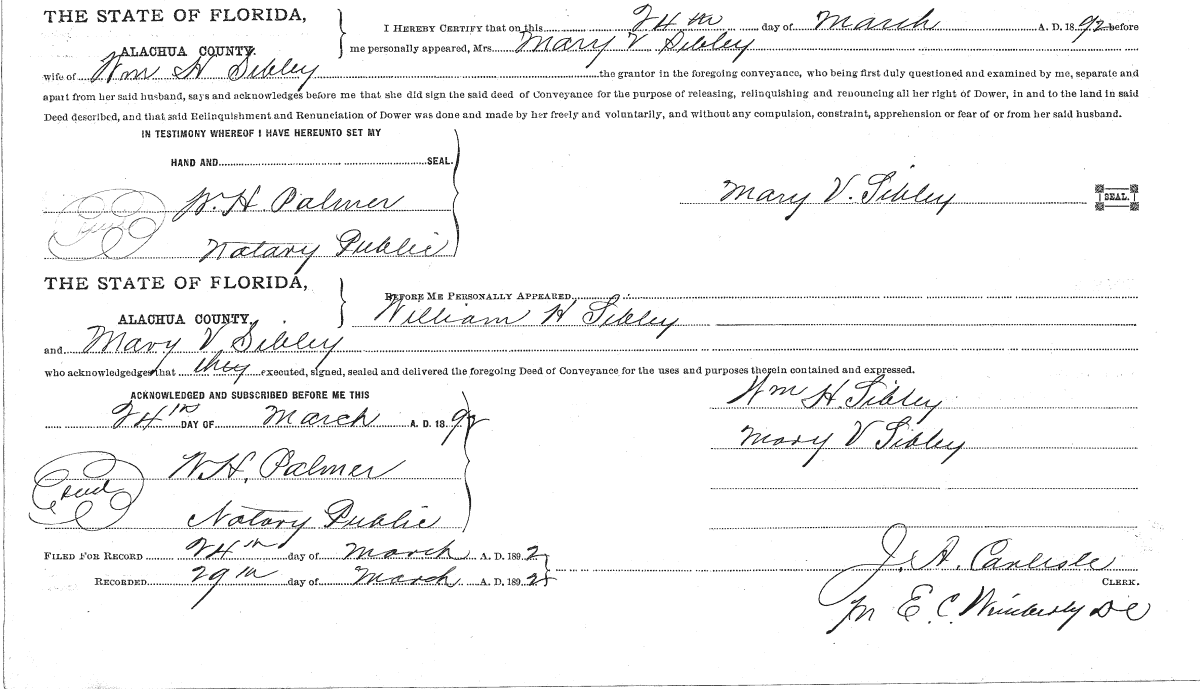 THE STATE OF FLORIDA,
ALACHUA COUNTY.
I HEREBY CERTIFY that on this 24th day of March A. D. 1892 before
me personally appeared, Mrs. Mary V Sibley
wife of Wm H Sibley the grantor in the foregoing conveyance, who being first duly questioned and examined by me, separate and
apart from her said husband, says and acknowledges before me that she did sign the said deed of Conveyance for the purpose of releasing, relinquishing and renouncing all her right of Dower, in and to the land in said
Deed described, and that said Relinquishment and Renunciation of Dower was done and made by her freely and voluntarily, and without any compulsion, constraint, apprehension or fear of or from her said husband.
IN TESTIMONY WHEREOF I HAVE HEREUNTO SET MY
HAND AND SEAL.
W. H. Palmer
Mary V. Sibley SEAL.
Seal
Notary Public
THE STATE OF FLORIDA,
ALACHUA COUNTY.
BEFORE ME PERSONALLY APPEARED
William H Sibley
and Mary V. Sibley
who acknowledged that they executed, signed, sealed and delivered the foregoing Deed of Conveyance for the uses and purposes therein contained and expressed.
ACKNOWLEDGED AND SUBSCRIBED BEFORE ME THIS
24th DAY OF March A. D. 1892
Wm H. Sibley
Mary V Sibley
W. H. Palmer
Seal
Notary Public
FILED FOR RECORD 24th day of March A. D. 1892
RECORDED 29th day of March A. D. 1892
J. A. Carlisle
CLERK.
E. C. Wimberly DC